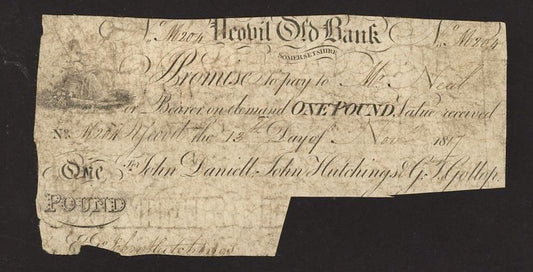 No M204 Yeovil Old Bank No M204
SOMERSETSHIRE
I Promise to pay to Mr Neal
or Bearer on demand ONE POUND Value received
No M204 Yeovil the 12th Day of Novr 1817
For John Daniell, John Hutchings & G. T. Gollop
ONE
POUND
John Hutchings